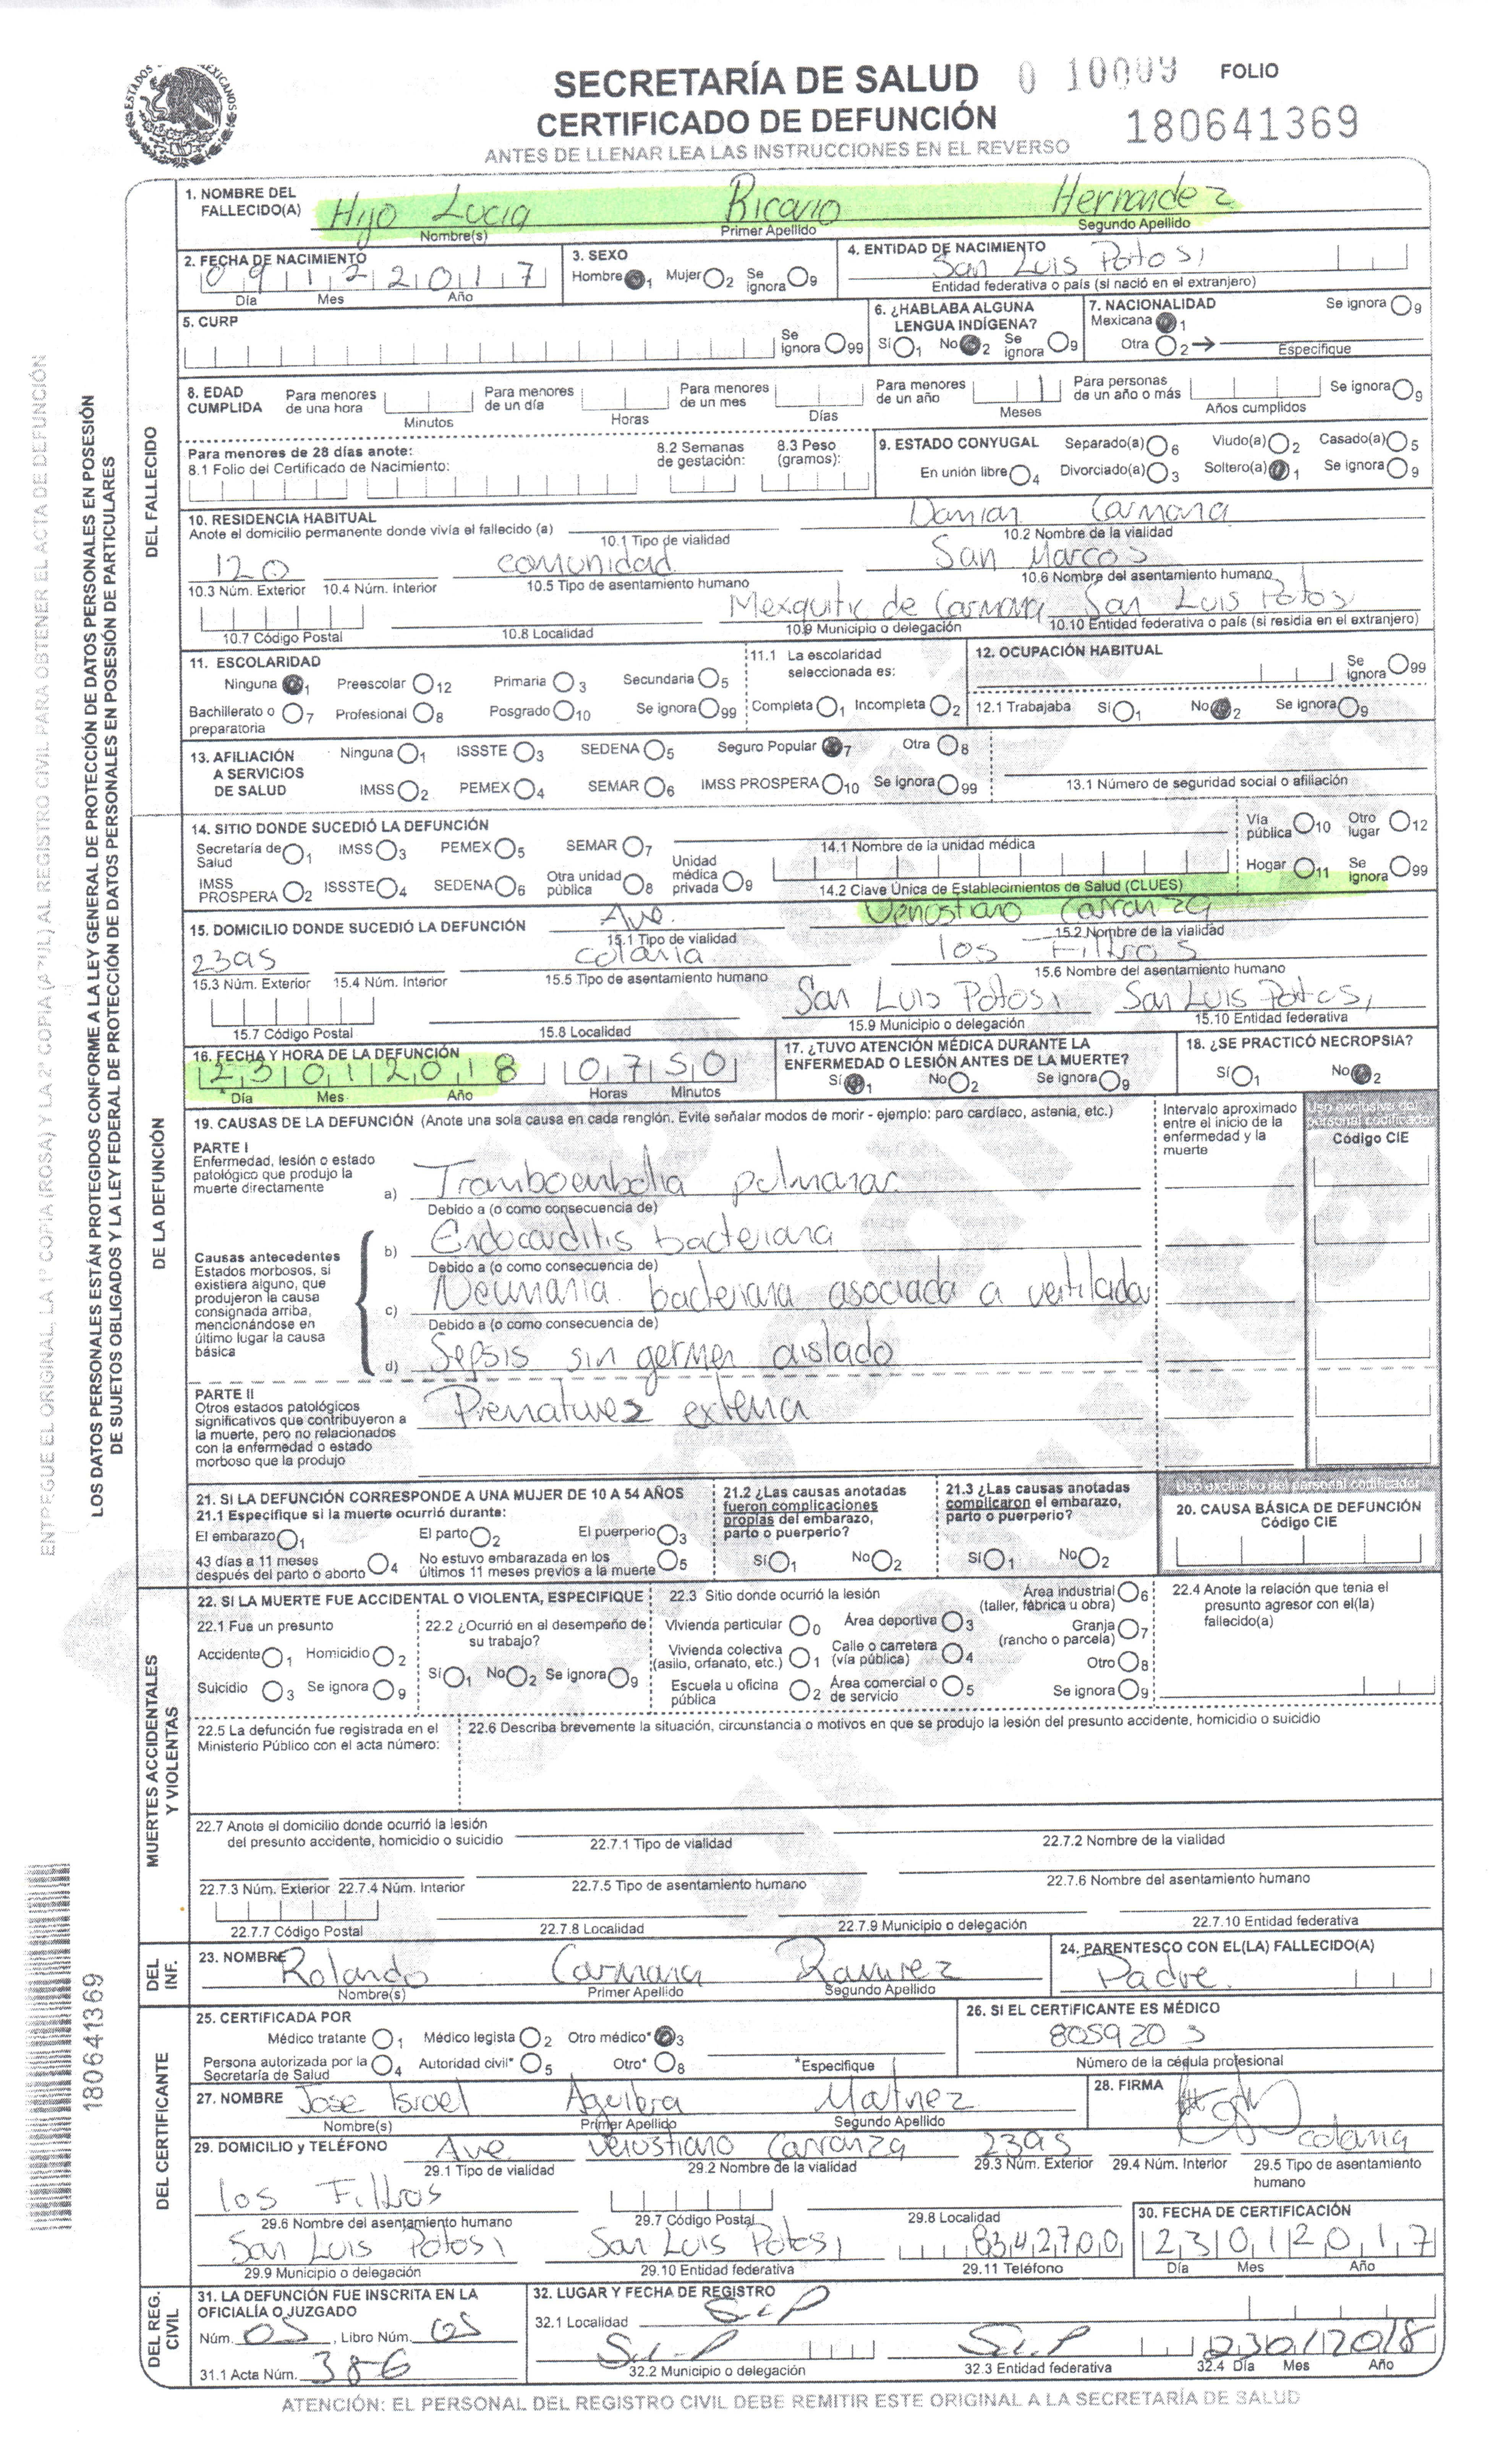 SECRETARÍA DE SALUD
FOLIO
CERTIFICADO DE DEFUNCIÓN
180641369
ANTES DE LLENAR LEA LAS INSTRUCCIONES EN EL REVERSO
ENTREGUE EL ORIGINAL, LA 1ª COPIA (ROSA) Y LA 2ª COPIA (AZUL) AL REGISTRO CIVIL PARA OBTENER EL ACTA DE DEFUNCIÓN
LOS DATOS PERSONALES ESTÁN PROTEGIDOS CONFORME A LA LEY GENERAL DE PROTECCIÓN DE DATOS PERSONALES EN POSESIÓN
DE SUJETOS OBLIGADOS Y LA LEY FEDERAL DE PROTECCIÓN DE DATOS PERSONALES EN POSESIÓN DE PARTICULARES
180641369
DEL FALLECIDO
1. NOMBRE DEL FALLECIDO(A) Hijo Lucia Bicario Hernandez
Nombre(s) Primer Apellido Segundo Apellido
2. FECHA DE NACIMIENTO 09122017
Día Mes Año
3. SEXO
Hombre 1 Mujer 2 Se ignora 9
4. ENTIDAD DE NACIMIENTO San Luis Potosi
Entidad federativa o país (si nació en el extranjero)
5. CURP
Se ignora 99
6. ¿HABLABA ALGUNA LENGUA INDÍGENA?
Sí 1 No 2 Se ignora 9
7. NACIONALIDAD Se ignora 9
Mexicana 1
Otra 2 Especifique
8. EDAD CUMPLIDA Para menores de una hora Minutos Para menores de un día Horas Para menores de un mes Días Para menores de un año 1 Meses Para personas de un año o más Años cumplidos Se ignora 9
Para menores de 28 días anote:
8.1 Folio del Certificado de Nacimiento: 8.2 Semanas de gestación: 8.3 Peso (gramos):
9. ESTADO CONYUGAL Separado(a) 6 Viudo(a) 2 Casado(a) 5
En unión libre 4 Divorciado(a) 3 Soltero(a) 1 Se ignora 9
10. RESIDENCIA HABITUAL Damian Carmona
Anote el domicilio permanente donde vivía el fallecido (a) 10.1 Tipo de vialidad 10.2 Nombre de la vialidad
120 comunidad San Marcos
10.3 Núm. Exterior 10.4 Núm. Interior 10.5 Tipo de asentamiento humano 10.6 Nombre del asentamiento humano
Mexquitic de Carmona San Luis Potosi
10.7 Código Postal 10.8 Localidad 10.9 Municipio o delegación 10.10 Entidad federativa o país (si residia en el extranjero)
11. ESCOLARIDAD
Ninguna 1 Preescolar 12 Primaria 3 Secundaria 5
Bachillerato o preparatoria 7 Profesional 8 Posgrado 10 Se ignora 99
11.1 La escolaridad seleccionada es:
Completa 1 Incompleta 2
12. OCUPACIÓN HABITUAL
Se ignora 99
12.1 Trabajaba Sí 1 No 2 Se ignora 9
13. AFILIACIÓN A SERVICIOS DE SALUD
Ninguna 1 ISSSTE 3 SEDENA 5 Seguro Popular 7 Otra 8
IMSS 2 PEMEX 4 SEMAR 6 IMSS PROSPERA 10 Se ignora 99
13.1 Número de seguridad social o afiliación
DE LA DEFUNCIÓN
14. SITIO DONDE SUCEDIÓ LA DEFUNCIÓN
Secretaría de Salud 1 IMSS 3 PEMEX 5 SEMAR 7
IMSS PROSPERA 2 ISSSTE 4 SEDENA 6 Otra unidad pública 8 Unidad médica privada 9
14.1 Nombre de la unidad médica
14.2 Clave Única de Establecimientos de Salud (CLUES)
Vía pública 10 Otro lugar 12
Hogar 11 Se ignora 99
15. DOMICILIO DONDE SUCEDIÓ LA DEFUNCIÓN Ave. Venustiano Carranza
15.1 Tipo de vialidad 15.2 Nombre de la vialidad
2395 colonia los Filtros
15.3 Núm. Exterior 15.4 Núm. Interior 15.5 Tipo de asentamiento humano 15.6 Nombre del asentamiento humano
San Luis Potosi San Luis Potosi
15.7 Código Postal 15.8 Localidad 15.9 Municipio o delegación 15.10 Entidad federativa
16. FECHA Y HORA DE LA DEFUNCIÓN
23012018 0750
Día Mes Año Horas Minutos
17. ¿TUVO ATENCIÓN MÉDICA DURANTE LA ENFERMEDAD O LESIÓN ANTES DE LA MUERTE?
Sí 1 No 2 Se ignora 9
18. ¿SE PRACTICÓ NECROPSIA?
Sí 1 No 2
19. CAUSAS DE LA DEFUNCIÓN (Anote una sola causa en cada renglón. Evite señalar modos de morir - ejemplo: paro cardíaco, astenia, etc.)
Intervalo aproximado entre el inicio de la enfermedad y la muerte
Uso exclusivo del personal codificador
Código CIE
PARTE I
Enfermedad, lesión o estado patológico que produjo la muerte directamente
a) Tromboembolia pulmonar
Debido a (o como consecuencia de)
b) Endocarditis bacteriana
Debido a (o como consecuencia de)
Causas antecedentes
Estados morbosos, si existiera alguno, que produjeron la causa consignada arriba, mencionándose en último lugar la causa básica
c) Neumonia bacteriana asociada a ventilador
Debido a (o como consecuencia de)
d) Sepsis sin germen aislado
PARTE II
Otros estados patológicos significativos que contribuyeron a la muerte, pero no relacionados con la enfermedad o estado morboso que la produjo
Prematurez extrema
21. SI LA DEFUNCIÓN CORRESPONDE A UNA MUJER DE 10 A 54 AÑOS
21.1 Especifique si la muerte ocurrió durante:
El embarazo 1 El parto 2 El puerperio 3
43 días a 11 meses después del parto o aborto 4 No estuvo embarazada en los últimos 11 meses previos a la muerte 5
21.2 ¿Las causas anotadas fueron complicaciones propias del embarazo, parto o puerperio?
Sí 1 No 2
21.3 ¿Las causas anotadas complicaron el embarazo, parto o puerperio?
Sí 1 No 2
Uso exclusivo del personal codificador
20. CAUSA BÁSICA DE DEFUNCIÓN
Código CIE
MUERTES ACCIDENTALES Y VIOLENTAS
22. SI LA MUERTE FUE ACCIDENTAL O VIOLENTA, ESPECIFIQUE
22.1 Fue un presunto
Accidente 1 Homicidio 2
Suicidio 3 Se ignora 9
22.2 ¿Ocurrió en el desempeño de su trabajo?
Sí 1 No 2 Se ignora 9
22.3 Sitio donde ocurrió la lesión
Vivienda particular 0 Área deportiva 3 Área industrial (taller, fábrica u obra) 6
Vivienda colectiva (asilo, orfanato, etc.) 1 Calle o carretera (vía pública) 4 Granja (rancho o parcela) 7
Otro 8
Escuela u oficina pública 2 Área comercial o de servicio 5 Se ignora 9
22.4 Anote la relación que tenia el presunto agresor con el(la) fallecido(a)
22.5 La defunción fue registrada en el Ministerio Público con el acta número:
22.6 Describa brevemente la situación, circunstancia o motivos en que se produjo la lesión del presunto accidente, homicidio o suicidio
22.7 Anote el domicilio donde ocurrió la lesión del presunto accidente, homicidio o suicidio
22.7.1 Tipo de vialidad 22.7.2 Nombre de la vialidad
22.7.3 Núm. Exterior 22.7.4 Núm. Interior 22.7.5 Tipo de asentamiento humano 22.7.6 Nombre del asentamiento humano
22.7.7 Código Postal 22.7.8 Localidad 22.7.9 Municipio o delegación 22.7.10 Entidad federativa
DEL INF.
23. NOMBRE Rolando Carmona Ramirez
Nombre(s) Primer Apellido Segundo Apellido
24. PARENTESCO CON EL(LA) FALLECIDO(A)
Padre.
DEL CERTIFICANTE
25. CERTIFICADA POR
Médico tratante 1 Médico legista 2 Otro médico* 3
Persona autorizada por la Secretaría de Salud 4 Autoridad civil* 5 Otro* 8 *Especifique
26. SI EL CERTIFICANTE ES MÉDICO
Número de la cédula profesional
27. NOMBRE Jose Israel Aguilera
Nombre(s) Primer Apellido Segundo Apellido
28. FIRMA
29. DOMICILIO y TELÉFONO Ave Venustiano Carranza 2395 colonia
29.1 Tipo de vialidad 29.2 Nombre de la vialidad 29.3 Núm. Exterior 29.4 Núm. Interior 29.5 Tipo de asentamiento humano
los Filtros
29.6 Nombre del asentamiento humano 29.7 Código Postal 29.8 Localidad
San Luis Potosi San Luis Potosi 8342700
29.9 Municipio o delegación 29.10 Entidad federativa 29.11 Teléfono
30. FECHA DE CERTIFICACIÓN
23012017
Día Mes Año
DEL REG. CIVIL
31. LA DEFUNCIÓN FUE INSCRITA EN LA OFICIALÍA O JUZGADO
Núm. 05, Libro Núm. 05
31.1 Acta Núm. 386
32. LUGAR Y FECHA DE REGISTRO
32.1 Localidad S.L.P
S.L.P S.L.P 23012018
32.2 Municipio o delegación 32.3 Entidad federativa 32.4 Día Mes Año
ATENCIÓN: EL PERSONAL DEL REGISTRO CIVIL DEBE REMITIR ESTE ORIGINAL A LA SECRETARÍA DE SALUD